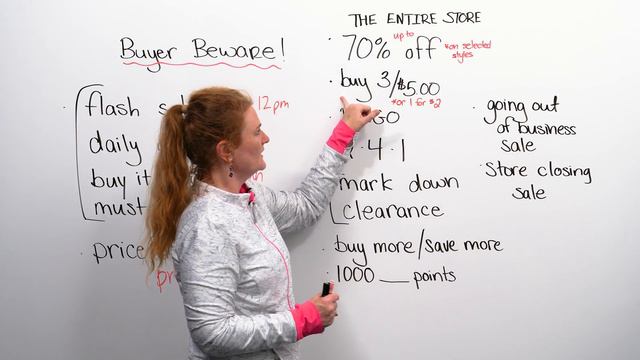 Buyer Beware!
flash
12pm
daily
buy it
must
price
THE ENTIRE STORE
up to
70% off *on selected styles
buy 3/$5.00
*or 1 for $2
GO
4 · 1
mark down
clearance
buy more/save more
1000 ___ points
going out
of business
sale
Store closing
sale